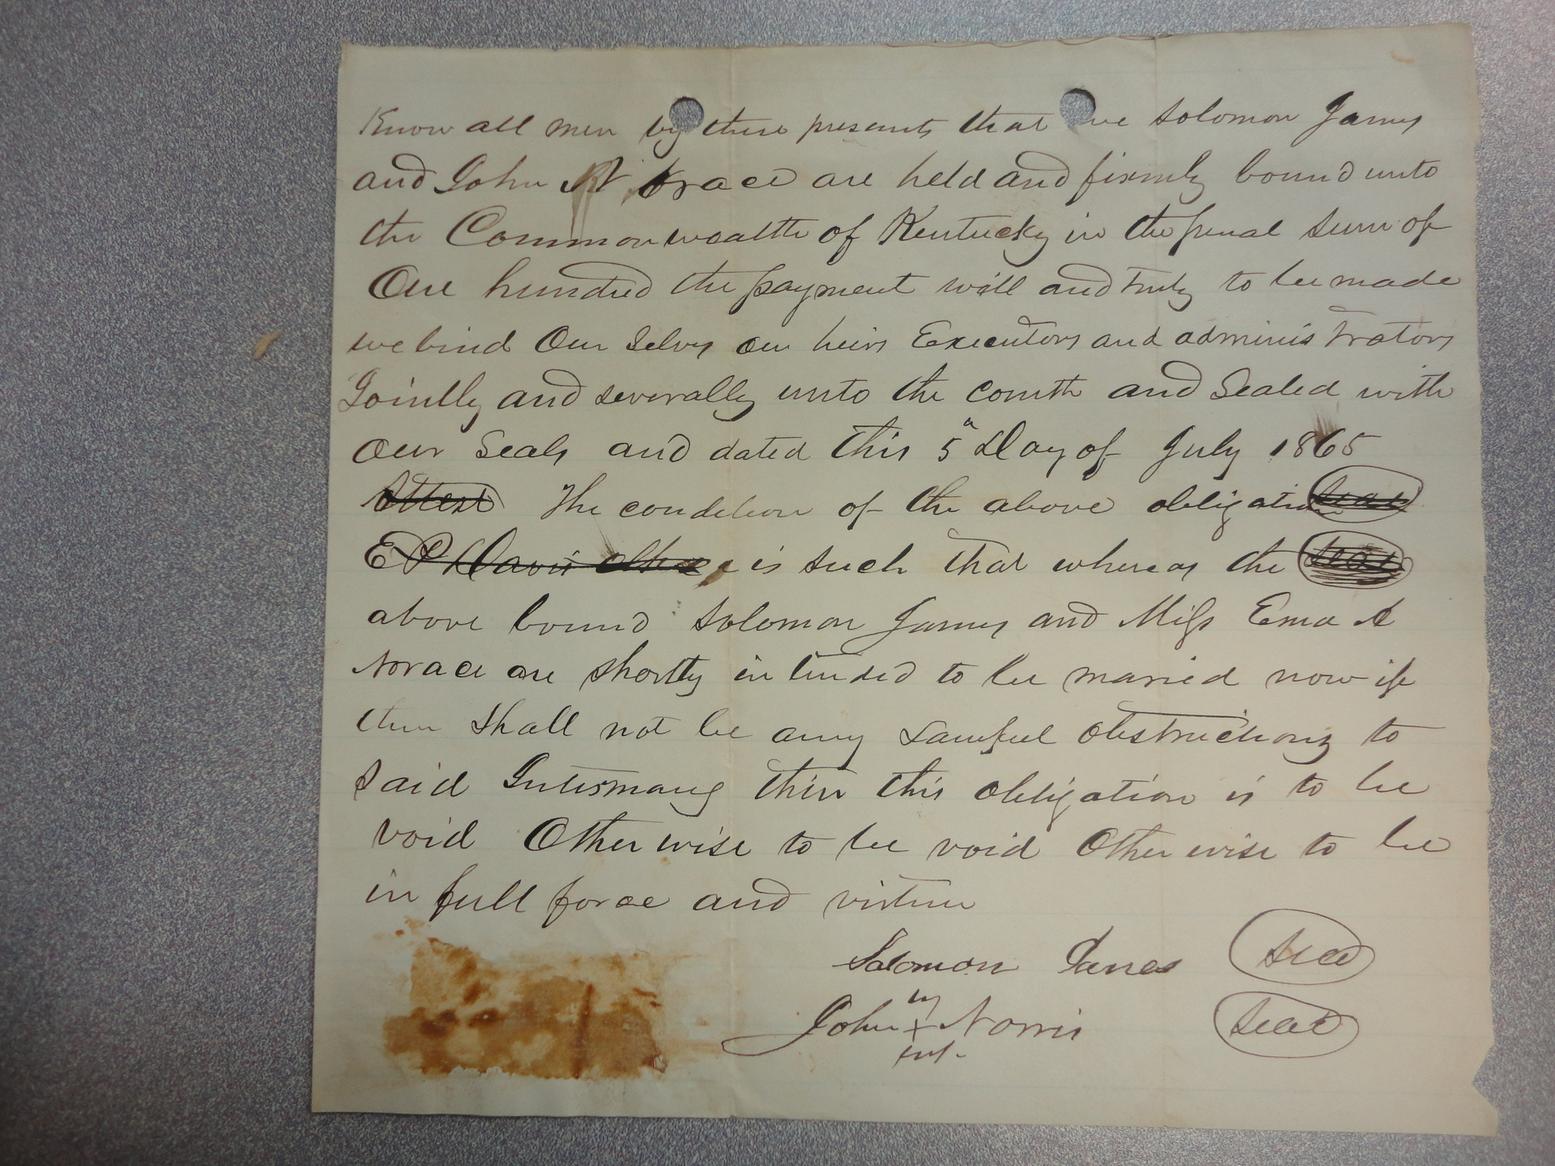 Know all men by these presents that we Solomon James
and John N Norace are held and firmly bound unto
the Commonwealth of Kentucky in the penal sum of
One hundred the payment will and truly to be made
we bind Our Selvs our heirs Executors and administrators
Jointly and severally unto the comth and Sealed with
our Seals and dated this 5" Day of July 1865
Attest The condition of the above obligation Seal
E P Davis is such that whereas the Seal
above bound Solomon James and Miss Ema A
Norace are shortly intended to be maried now if
there Shall not be any Lawful obstructions to
said Intermang then this obligation is to be
void Otherwise to be void Otherwise to be
in full force and virtue
Solomon James Seal
John X Norris Seal